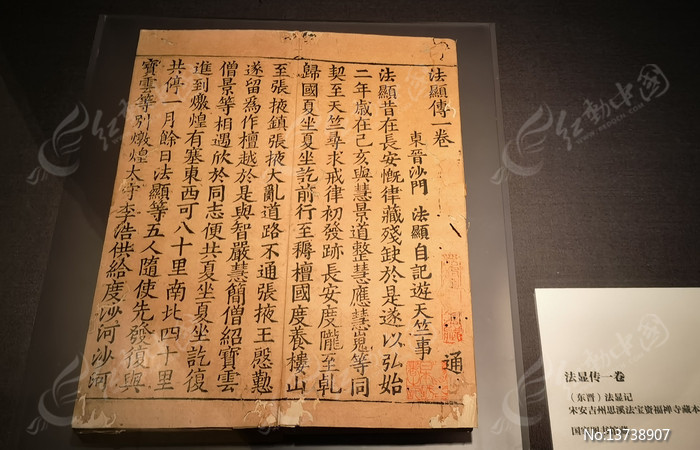 法顯傳一卷
東晉沙門 法顯 自記遊天竺事 通
法顯昔在長安慨律藏殘缺於是遂以弘始
二年歲在己亥與慧景道整慧應慧嵬等同
契至天竺尋求戒律初發跡長安度隴至乹
歸國夏坐夏坐訖前行至耨檀國度養樓山
至張掖鎮張掖大亂道路不通張掖王慇懃
遂留為作檀越於是與智嚴慧簡僧紹寶雲
僧景等相遇欣於同志便共夏坐夏坐訖復
進到燉煌有塞東西可八十里南北四十里
共停一月餘日法顯等五人隨使先發復與
寶雲等別燉煌太守李浩供給度沙河沙河
法显传一卷
（东晋）法显记
宋安吉州思溪法宝资福禅寺藏本
红动中国
WWW.REDOCN.COM
No:13738907